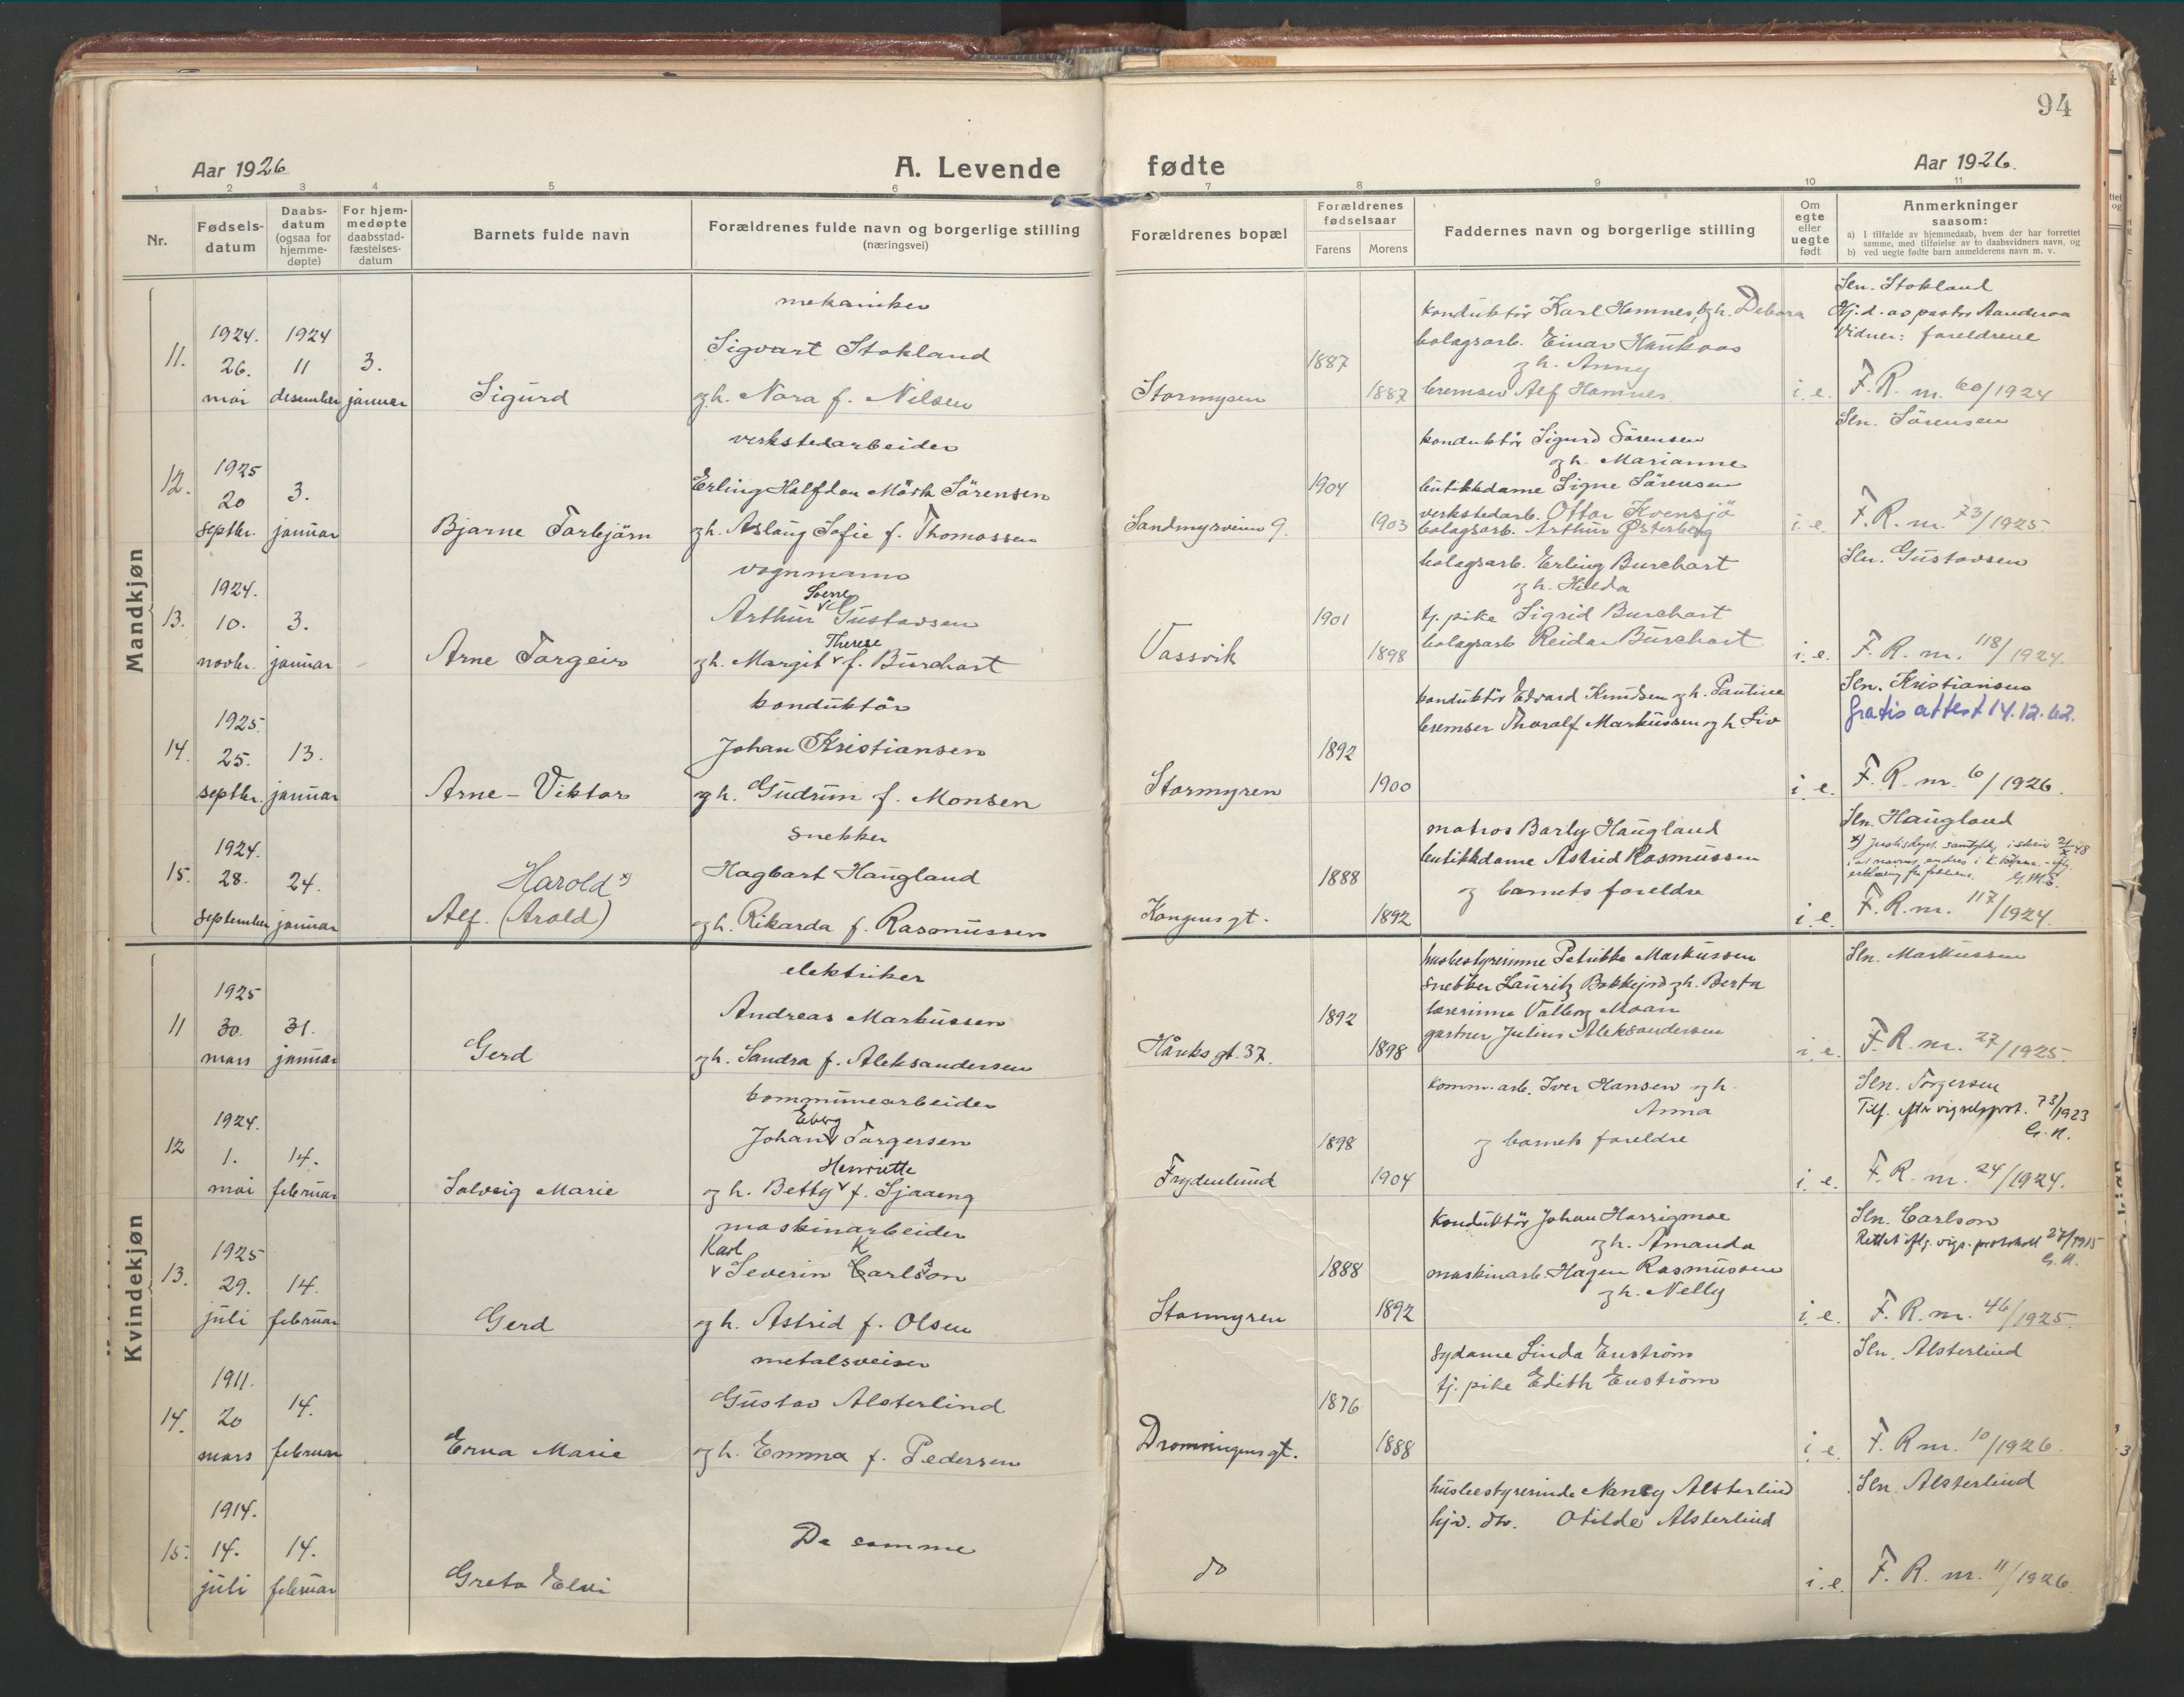 94
Aar 1926
A. Levende fødte
Aar 1926.
1 2 3 4 5 6 7 8 9 10 11
Nr.
Fødsels-
datum
Daabs-
datum
(ogsaa for
hjemme-
døpte)
For hjem-
medøpte
daabsstad-
fæstelses-
datum
Barnets fulde navn
Forældrenes fulde navn og borgerlige stilling
(næringsvei)
Forældrenes bopæl
Forældrenes
fødselsaar
Farens Morens
Faddernes navn og borgerlige stilling
Om
egte
eller
uegte
født
Anmerkninger
saasom:
a) I tilfælde av hjemmedaab, hvem der har forrettet
samme, med tilføielse av to daabsvidners navn, og
b) ved uegte fødte barn anmelderens navn m. v.
Mandkjøn
11.
1924.
26.
mai
1924
11
desember
3.
januar
Sigurd
mekaniker
Sigvart Stokland
og h. Nora f. Nilsen
Stormyren
1887
1887
konduktör Karl Hamnes, og h. Debora
bolagsarb. Einar Haukaas
og h. Anny
bremser Alf Hamnes
i. e.
Sln. Stokland
Hj. d. av pastor Aanderaa
Vidner: foreldrene
F. R. nr. 60/1924
12.
1925
20
septbr.
3.
januar
Bjarne Torbjörn
verkstedarbeider
Erling Halfdan Mörk Sörensen
og h. Aslaug Sofie f. Thomassen
Sandmyrveien 9.
1904
1903
konduktör Sigurd Sörensen
og h. Marianne
butikkdame Signe Sörensen
verkstedarb. Ottar Kvensjö
bolagsarb. Arthur Østerberg
i. e.
Sln. Sörensen
F. R. nr. 73/1925.
13.
1924.
10.
novbr.
3.
januar
Arne Torgeir
vognmann
Sverre
Arthur Gustavsen
Therese
og h. Margit f. Burchart
Vassvik
1901
1898
bolagsarb. Erling Burchart
og h. Hilda
tj. pike Sigrid Burchart
bolagsarb Reidar Burchart
i. e.
Sln. Gustavsen
F. R. nr. 118/1924.
14.
1925.
25.
septbr.
13.
januar
Arne-Viktor
konduktör
Johan Kristiansen
og h. Gudrun f. Monsen
Stormyren
1892
1900
konduktör Edvard Knudsen og h. Pauline
bremser Thoralf Markussen og h. Liv
i. e.
Sln. Kristiansen
Gratis attest 14.12.62.
F. R. nr. 6/1926.
15.
1924.
28.
september
24.
januar
Harold x)
Alf. (Arold)
snekker
Hagbart Haugland
og h. Rikarda f. Rasmussen
Kongensgt.
1888
1892
matros Barly Haugland
butikkdame Astrid Rasmussen
og barnets foreldre
i. e.
Sln. Haugland
x) Justisdept. samtykker i skriv
G.M.E.
F. R. nr. 117/1924.
Kvindekjøn
11
1925
30.
mars
31.
januar
Gerd
elektriker
Andreas Markussen
og h. Sandra f. Aleksandersen
Håreks gt. 37.
1892
1898
husbestyrerinne Petrikke Markussen
snekker Lauritz Bakkejord og h. Berta
lærerinne Valborg Moan
gartner Julius Aleksandersen
i. e.
Sln. Markussen
F. R. nr. 27/1925.
12
1924.
1.
mai
14.
februar
Solveig Marie
kommunearbeider
Eberg
Johan Torgersen
Henriette
og h. Betty f. Sjaaeng
Frydenlund
1898
1904
komm. arb. Iver Hansen og h.
Anna
og barnets foreldre
i. e.
Sln. Torgersen
Tilf. efter vigselsprot. 73/1923
G. N.
F. R. nr. 24/1924.
13.
1925
29.
juli
14.
februar
Gerd
maskinarbeider
Karl K
Severin Carlson
og h. Astrid f. Olsen
Stormyren
1888
1892
konduktör Johan Harrigmoe
og h. Amanda
maskinarb. Hagen Rasmussen
og h. Nelly
i. e.
Sln. Carlson
Rettet iflg. vigs. protokoll 27/1915
G. N.
F. R. nr. 46/1925.
14.
1911.
20
mars
14.
februar
Erna Marie
metalsveiser
Gustav Alsterlind
og h. Emma f. Pedersen
Dronningensgt.
1876
1888
sydame Linda Enström
tj. pike Edith Enström
i. e.
Sln. Alsterlind
F. R nr. 10/1926.
15.
1914.
14.
juli
14.
februar
Greta Elvi
De samme
do
husbestyrerinde Nancy Alsterlind
hjv. dtr. Otilde Alsterlind
i. e.
Sln. Alsterlind
F. R. nr. 11/1926.